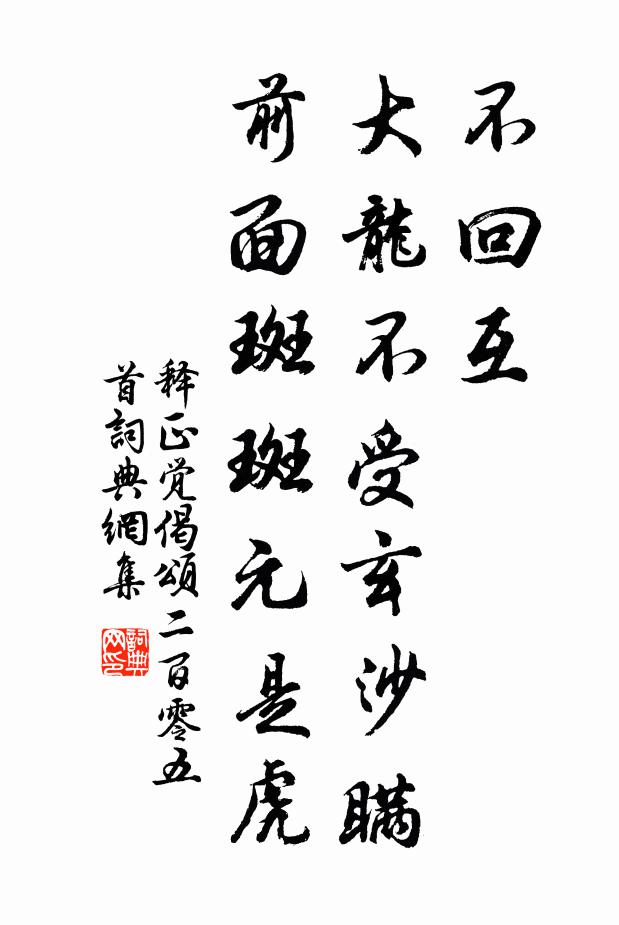 不回互
大龍不受玄沙瞞
前面斑斑元是虎
释正觉偈頌二百零五
首詞典網集
詞典网印